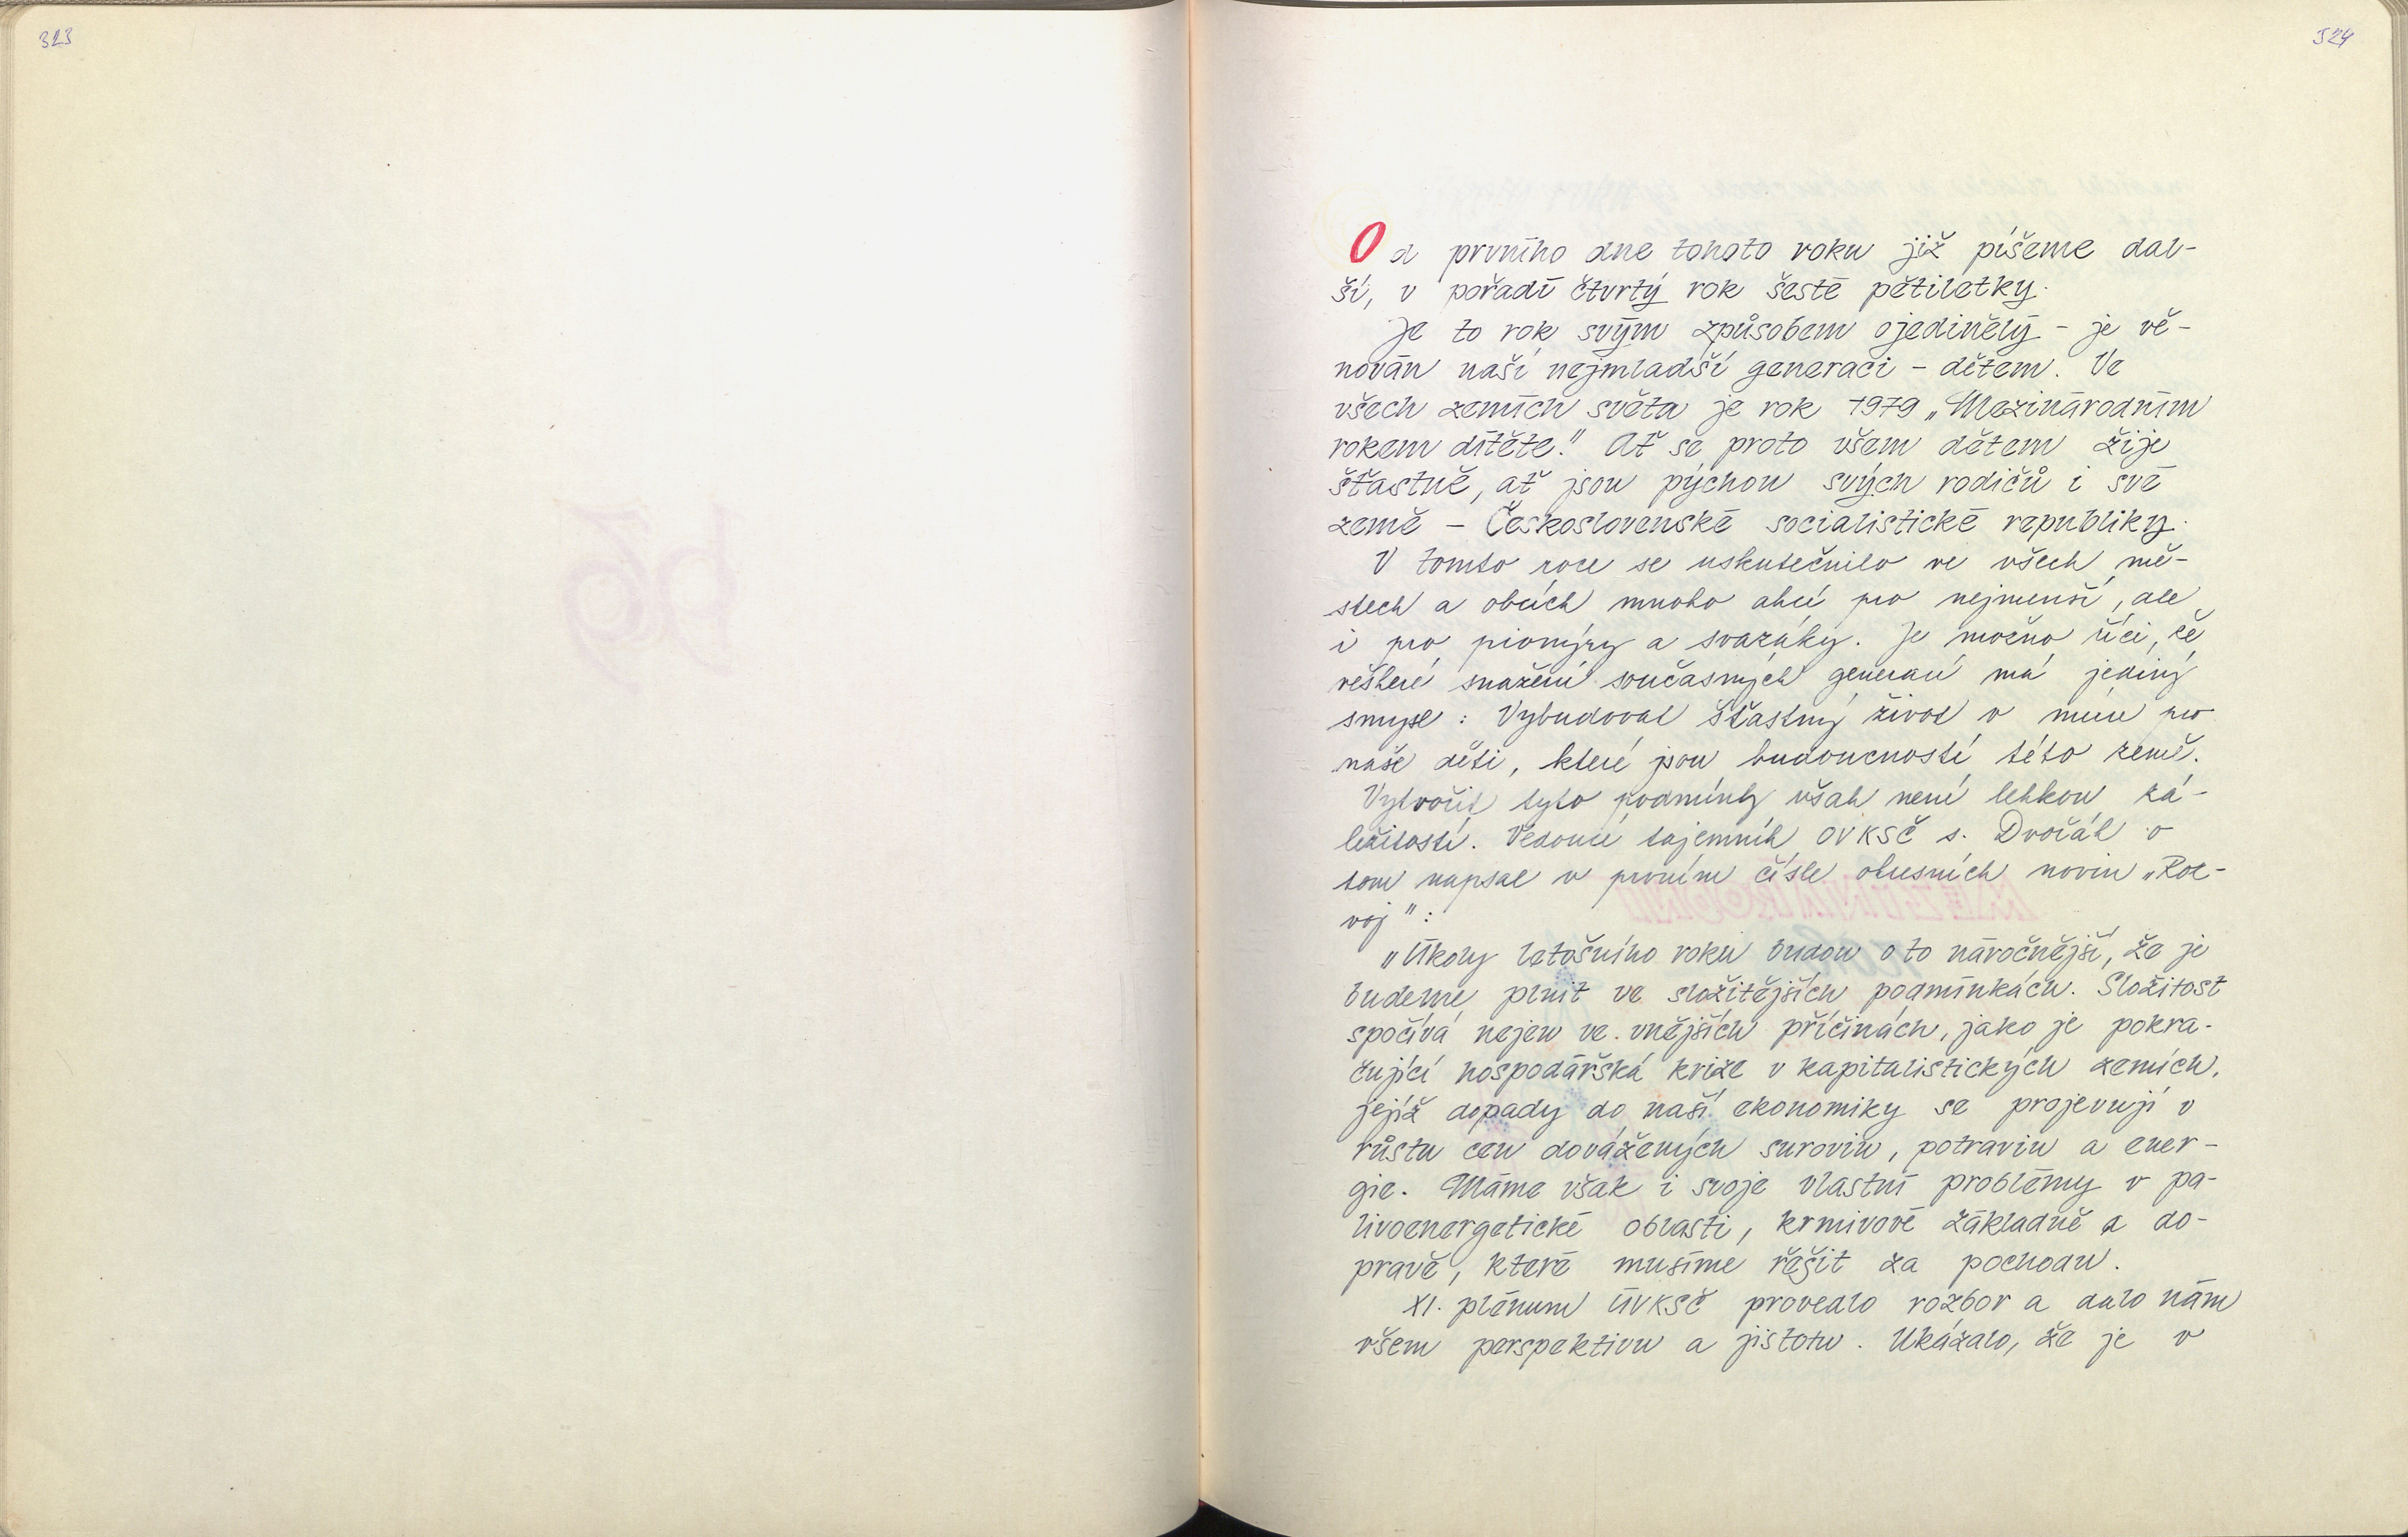 323
324
Od prvního dne tohoto roku již píšeme dal-
ší, v pořadí čtvrtý rok šesté pětiletky.
Je to rok svým způsobem ojedinělý - je vě-
nován naší nejmladší generaci - dětem. Ve
všech zemích světa je rok 1979 „Mezinárodním
rokem dítěte." Ať se proto všem dětem žije
šťastně, ať jsou pýchou svých rodičů i své
země - Československé socialistické republiky.
V tomto roce se uskutečnilo ve všech mě-
stech a obcích mnoho akcí pro nejmenší, ale
i pro pionýry a svazáky. Je možno říci, že
veškeré snažení současných generací má jediný
smysl: Vybudovat šťastný život v míru pro
naše děti, které jsou budoucností této země.
Vytvořit tyto podmínky však není lehkou zá-
ležitostí. Vedoucí tajemník OVKSČ s. Dvořák o
tom napsal v prvním čísle okresních novin „Roz-
voj":
„Úkoly letošního roku budou o to náročnější, že je
budeme plnit ve složitějších podmínkách. Složitost
spočívá nejen ve vnějších příčinách, jako je pokra-
čující hospodářská krize v kapitalistických zemích,
jejíž dopady do naší ekonomiky se projevují v
růstu cen dovážených surovin, potravin a ener-
gie. Máme však i svoje vlastní problémy v pa-
livoenergetické oblasti, krmivové základně a do-
pravě, které musíme řešit za pochodu.
XI. plénum ÚVKSČ provedlo rozbor a dalo nám
všem perspektivu a jistotu. Ukázalo, že je v